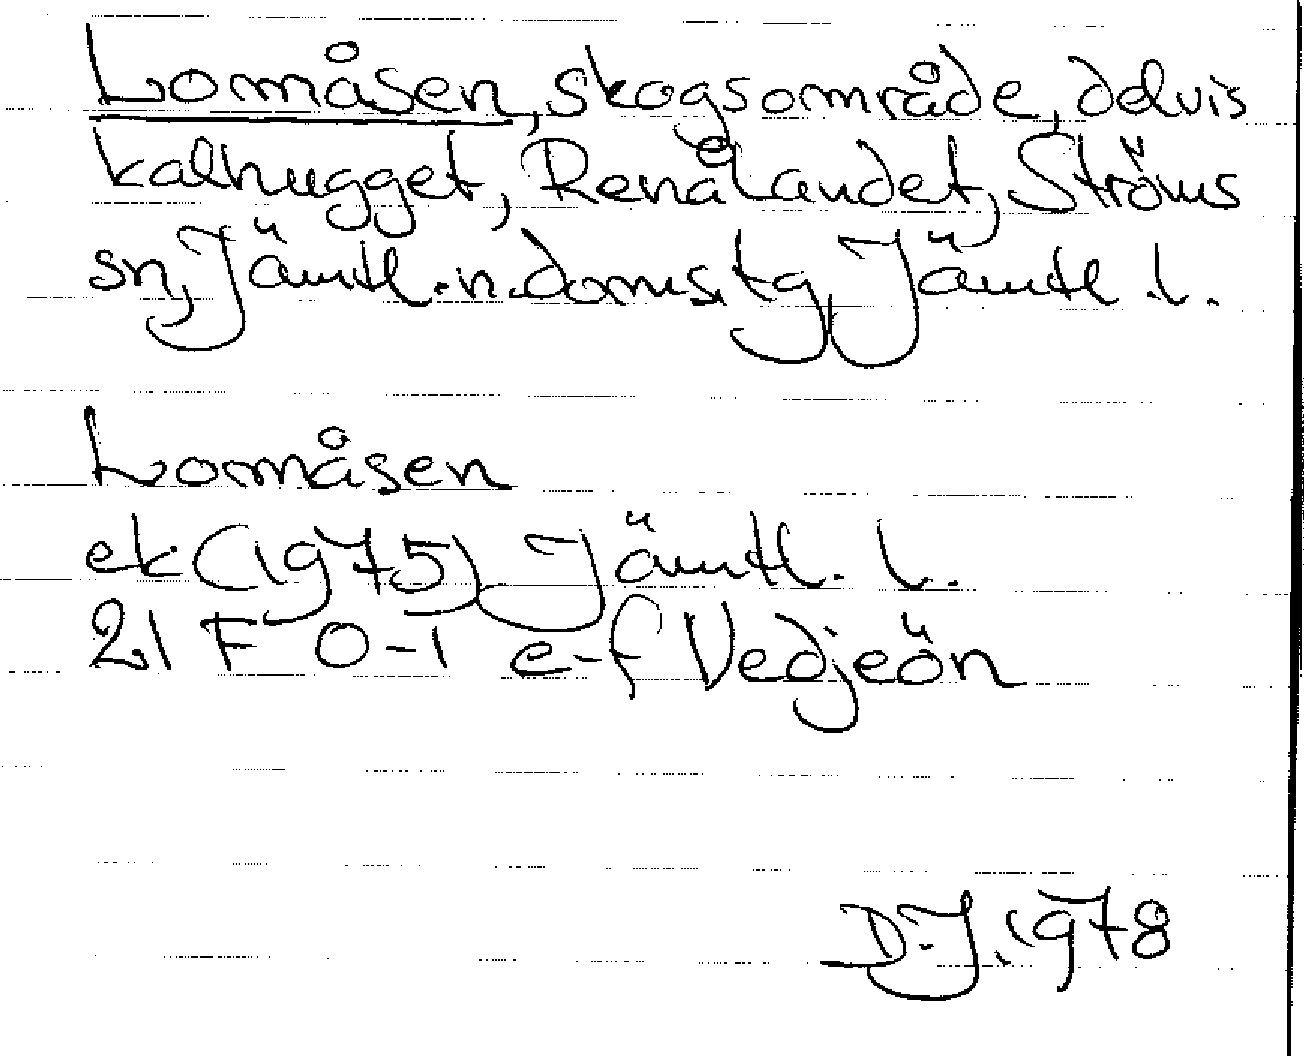 Lomåsen, skogsområde, delvis
kalhugget, Renålandet, Ströms
sn, Jämtl. n. doms. tg, Jämtl. l.
Lomåsen
ek (1975) Jämtl. l.
21 F 0-1 e-f Vedjeön
D.J. 1978